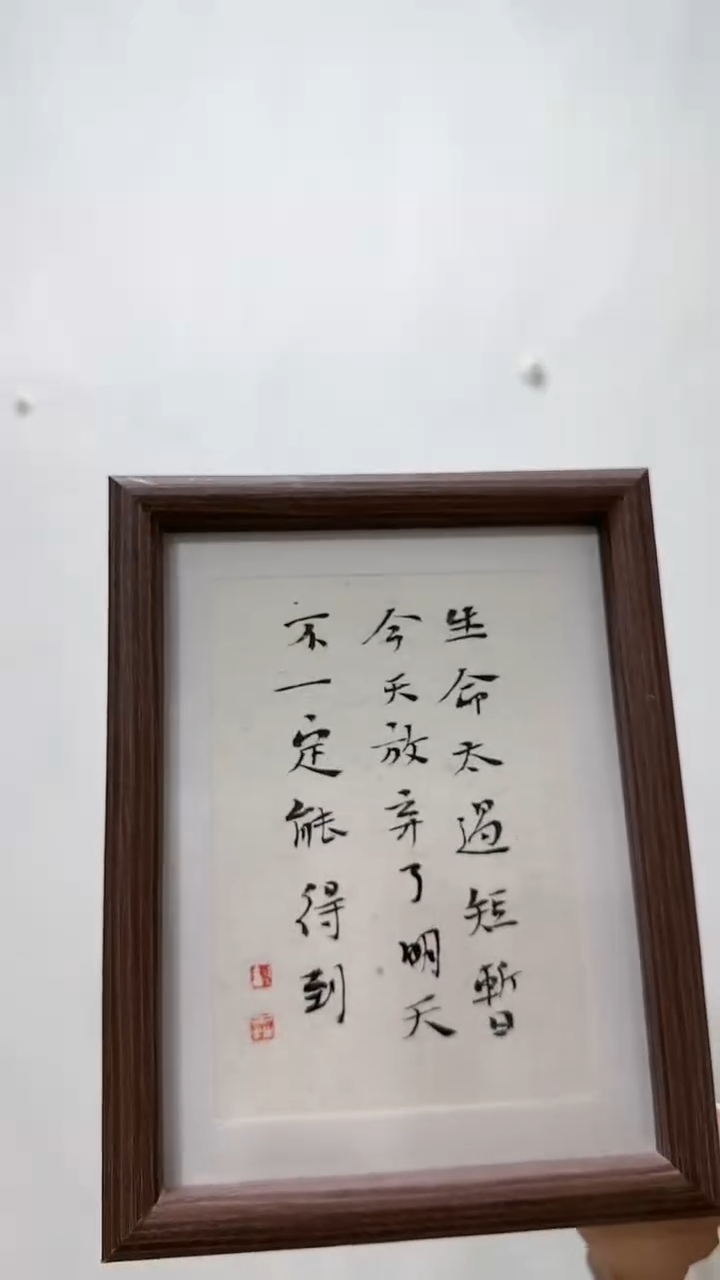 生命太過短暫
今天放弃了明天
不一定能得到